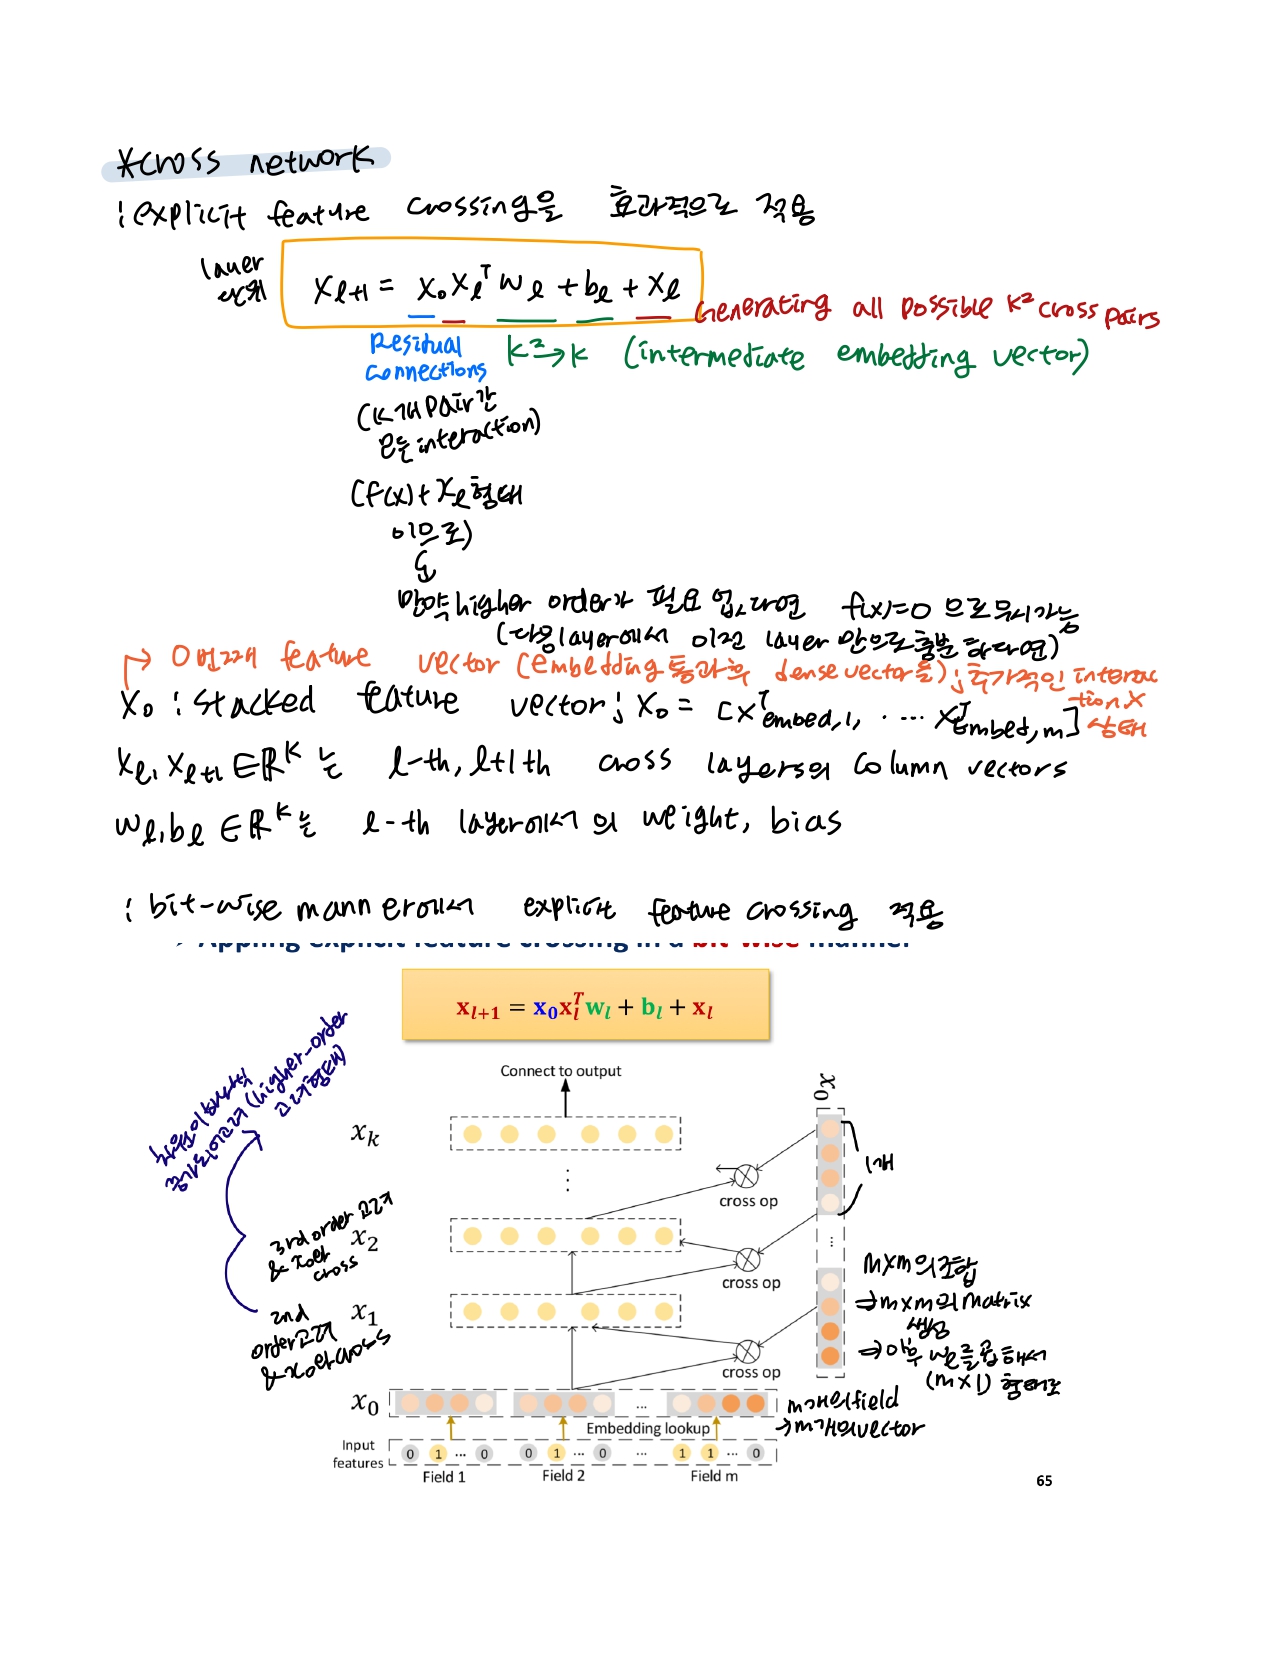 *cross network
: explicit feature crossing을 효과적으로 적용
layer 단위
x_{l+1} = x_0 x_l^T w_l + b_l + x_l
Generating all possible K² cross pairs
Residual connections
K² → K (intermediate embedding vector)
(K개 pair간
모든 interaction)
(f(x) + x_l 형태
이므로)
만약 higher order가 필요 없다면 f(x)=0 으로 무시가능
(다음 layer에서 이전 layer 만으로 충분하다면)
→ 0번째 feature vector (embedding 통과후 dense vector들) ; 추가적인 interaction X 상태
x_0 : stacked feature vector ; x_0 = [x^T_{embed,1}, ··· x^T_{embed,m}]
x_l, x_{l+1} ∈ ℝ^K 는 l-th, l+1th cross layers의 column vectors
w_l, b_l ∈ ℝ^K 는 l-th layer에서의 weight, bias
: bit-wise manner에서 explicit feature crossing 적용
Appling explicit feature crossing in a bit-wise manner
x_{l+1} = x_0 x_l^T w_l + b_l + x_l
(higher-order
고려형태)
Connect to output
x_0
x_k
1개
cross op
3rd order 고려
& x_0와
cross
x_2
cross op
m×m의 조합
⇒ m×m의 matrix
생성
⇒ 이후 w_l을 곱해서
(m×1) 형태로
2nd
order고려
& x_0와 cross
x_1
cross op
x_0
m개의 field
→ m개의 vector
Embedding lookup
Input features
0 1 ... 0 0 1 ... 0 ... 1 1 ... 0
Field 1 Field 2 Field m
65